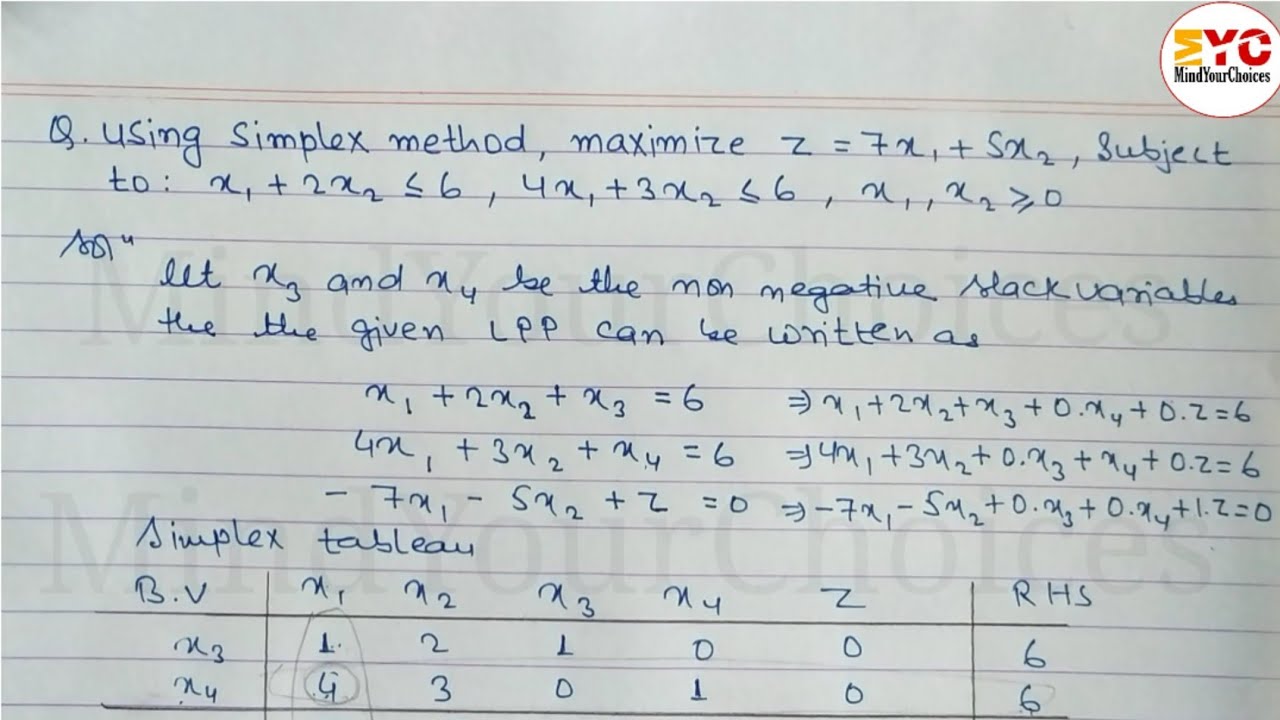 MYC
MindYourChoices
Q. Using Simplex method, maximize z = 7x₁ + 5x₂, Subject
to: x₁ + 2x₂ ≤ 6, 4x₁ + 3x₂ ≤ 6, x₁, x₂ ≥ 0
Solⁿ
let x₃ and x₄ be the non negative slack variables
the the given LPP can be written as
x₁ + 2x₂ + x₃ = 6 ⇒ x₁ + 2x₂ + x₃ + 0.x₄ + 0.z = 6
4x₁ + 3x₂ + x₄ = 6 ⇒ 4x₁ + 3x₂ + 0.x₃ + x₄ + 0.z = 6
- 7x₁ - 5x₂ + z = 0 ⇒ -7x₁ - 5x₂ + 0.x₃ + 0.x₄ + 1.z = 0
Simplex tableau
B.V x₁ x₂ x₃ x₄ z RHS
x₃ 1 2 1 0 0 6
x₄ 4 3 0 1 0 6
MindYourChoices
MindYourChoices